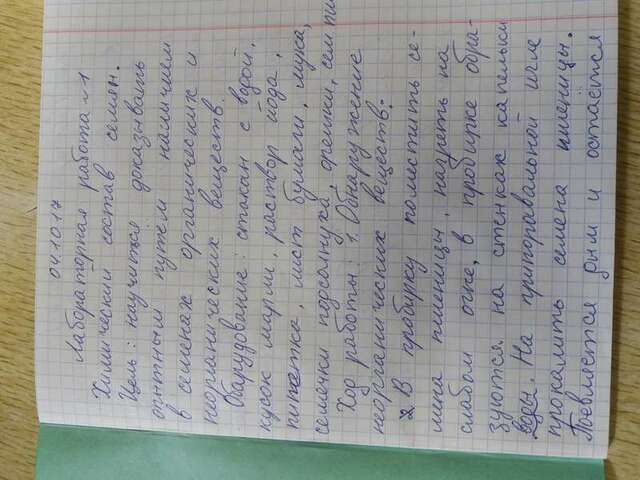 04.10.17
Лабораторная работа №1
Химический состав семян.
Цель: научиться доказывать
опытным путём наличием
в семенах органических и
неорганических веществ.
Обарудование: стакан с водой,
кусок марли, раствор йода,
пипетка, лист бумаги, мука,
семечки подсолнуха, орешки, сем пш
Ход работы: 1. Обнаружение
неорганических веществ:
2. В пробирку поместить се-
мена пшеницы, нагреть на
слабом огне, в пробирке обра-
зуются на стенках капельки
воды. На припоравальной игле
прокалить семена пшеницы.
Поевляется дым и остаётся